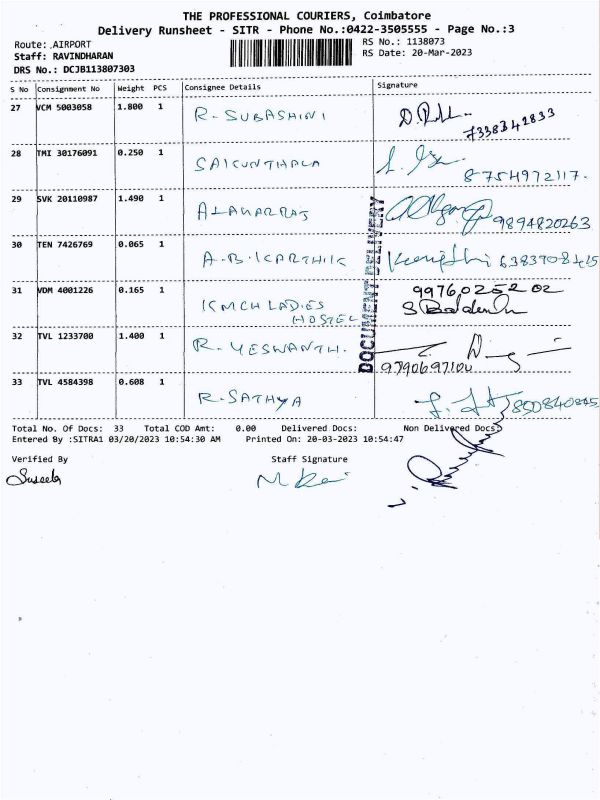 THE PROFESSIONAL COURIERS, Coimbatore
Delivery Runsheet - SITR - Phone No.:0422-3505555 - Page No.:3
Route: AIRPORT
RS No.: 1138073
Staff: RAVINDHARAN
RS Date: 20-Mar-2023
DRS No.: DCJB113807303
S No Consignment No Weight PCS Consignee Details Signature
27 VCM 5003058 1.800 1 R. SUBASHINI
7338342833
28 TMI 30176091 0.250 1 SAKUNTHALA
8754972117.
29 SVK 20110987 1.490 1 ALAGARRAJ 9894820263
30 TEN 7426769 0.065 1 A.B.KARTHIK
31 VDM 4001226 0.165 1 KMCH LADIES HOSTEL
9976025202
32 TVL 1233700 1.400 1 R. YESWANTH.
33 TVL 4584398 0.608 1 R. SATHYA
DOCUMENT DELIVERY
Total No. Of Docs: 33 Total COD Amt: 0.00 Delivered Docs: Non Delivered Docs:
Entered By :SITRA1 03/20/2023 10:54:30 AM Printed On: 20-03-2023 10:54:47
Verified By Staff Signature
Suseela